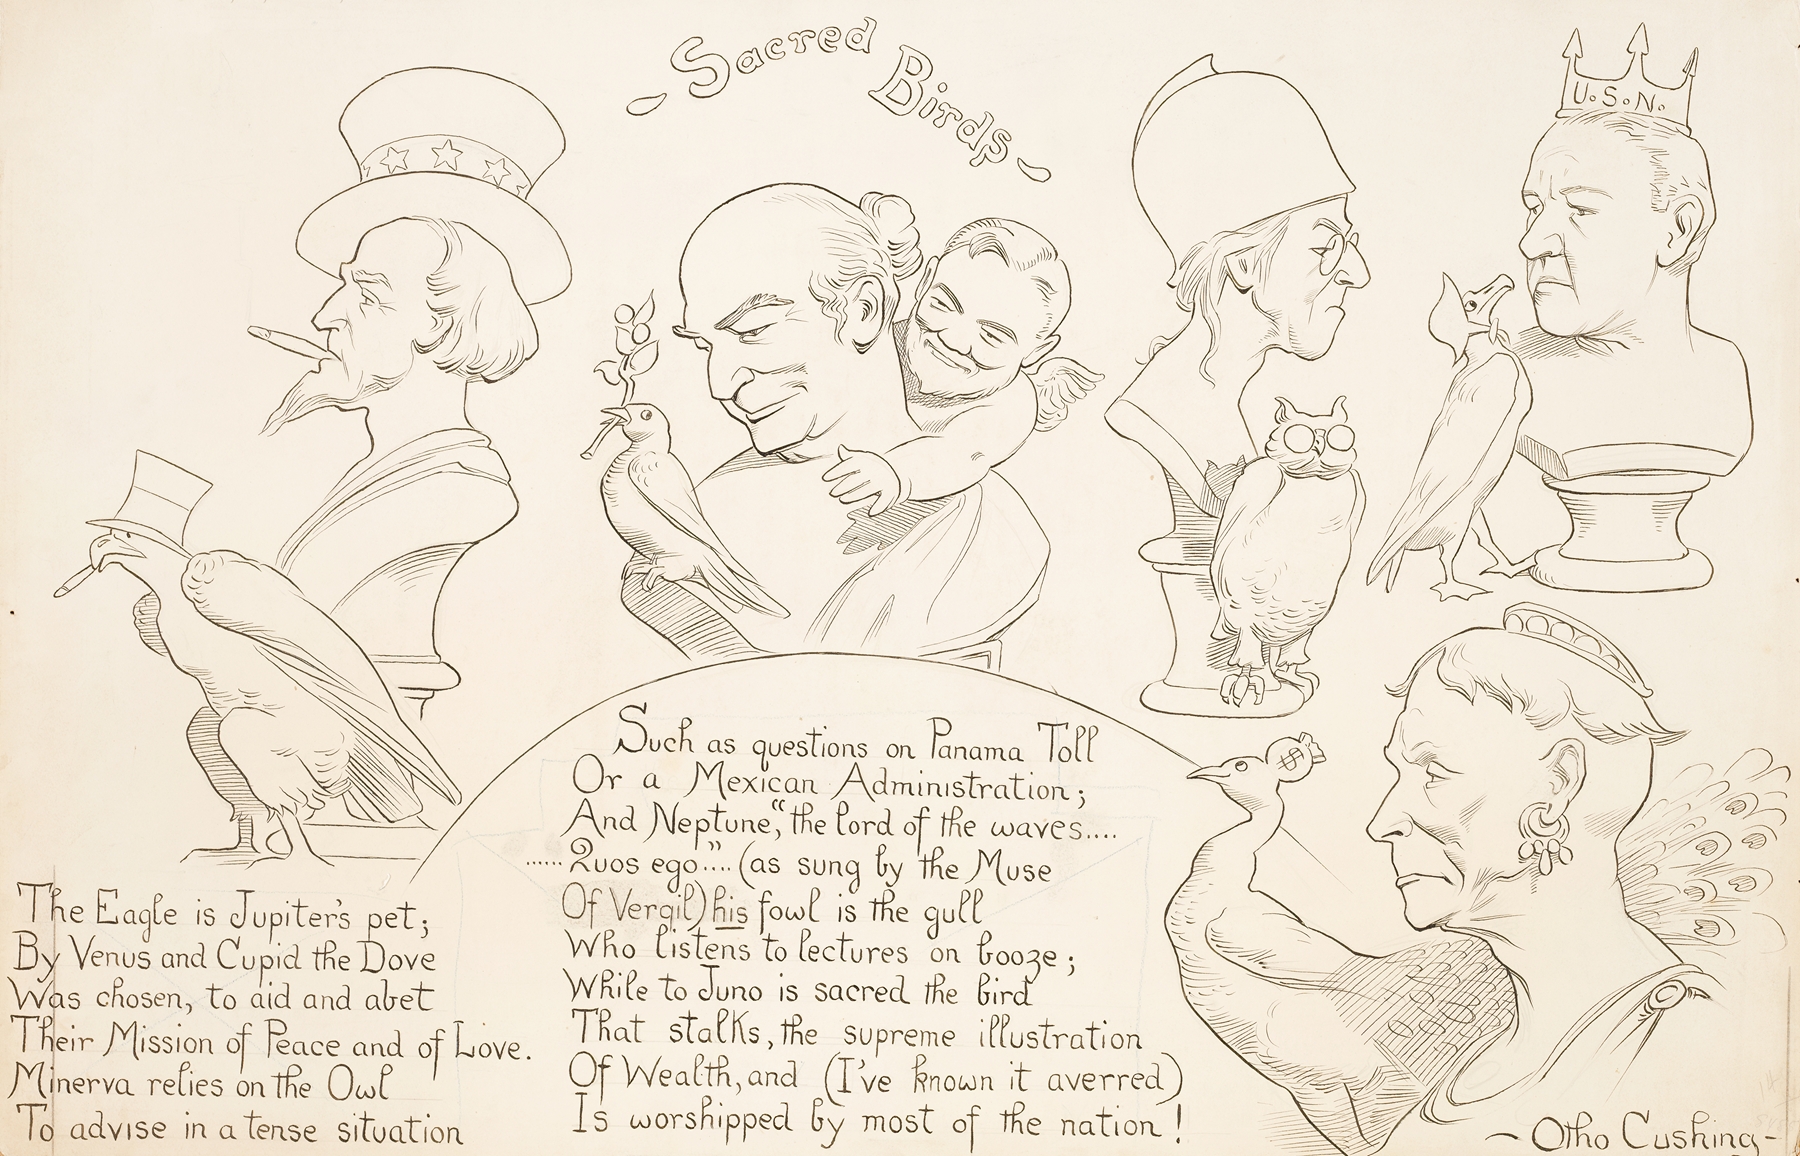 Sacred Birds
U.S.N.
$
The Eagle is Jupiter's pet;
By Venus and Cupid the Dove
Was chosen, to aid and abet
Their Mission of Peace and of Love.
Minerva relies on the Owl
To advise in a tense situation
Such as questions on Panama Toll
Or a Mexican Administration;
And Neptune, "the lord of the waves....
......Quos ego".... (as sung by the Muse
Of Vergil) his fowl is the gull
Who listens to lectures on booze;
While to Juno is sacred the bird
That stalks, the supreme illustration
Of Wealth, and (I've known it averred)
Is worshipped by most of the nation!
- Otho Cushing -